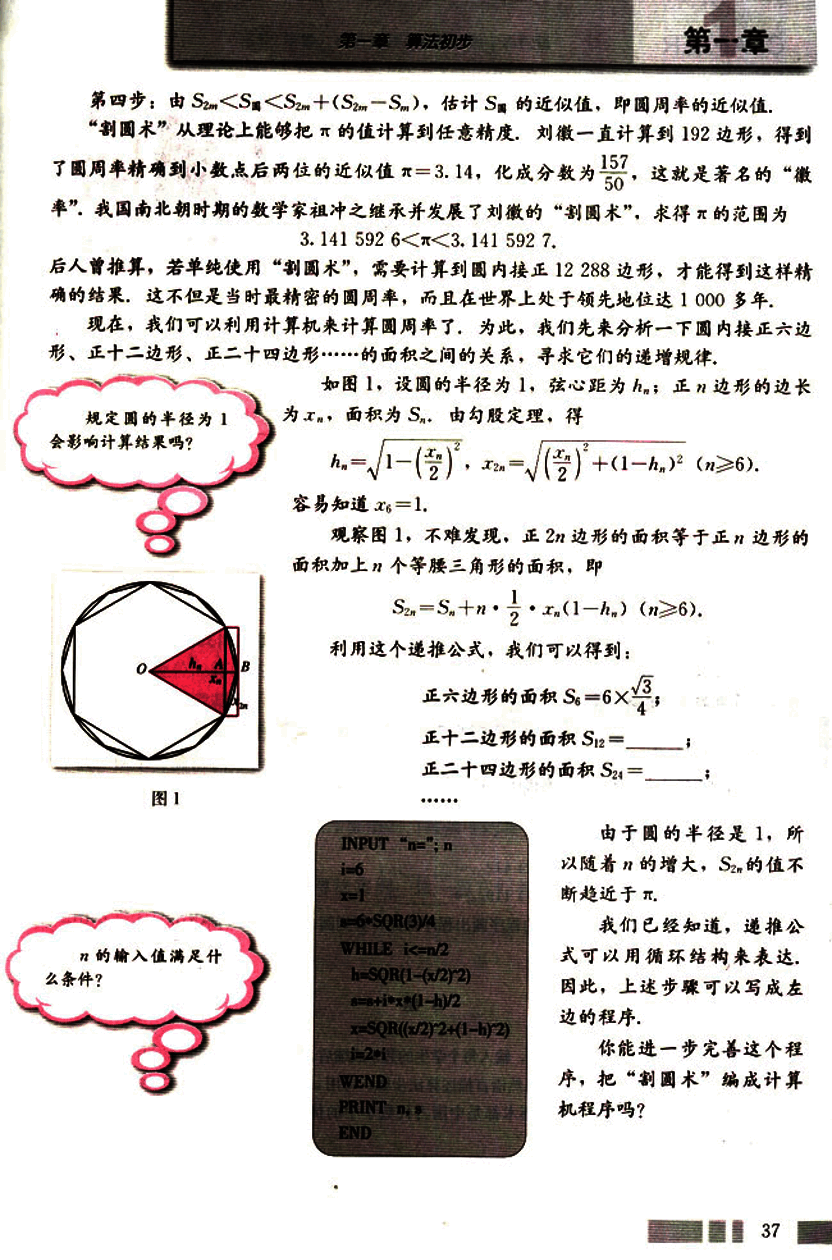 第一章 算法初步
第一章
第四步：由 S2m<S圆<S2m+(S2m-Sm)，估计 S圆 的近似值，即圆周率的近似值.
“割圆术”从理论上能够把 π 的值计算到任意精度. 刘徽一直计算到 192 边形，得到
了圆周率精确到小数点后两位的近似值 π=3.14，化成分数为 157/50，这就是著名的“徽
率”. 我国南北朝时期的数学家祖冲之继承并发展了刘徽的“割圆术”，求得 π 的范围为
3.141 592 6<π<3.141 592 7.
后人曾推算，若单纯使用“割圆术”，需要计算到圆内接正 12 288 边形，才能得到这样精
确的结果. 这不但是当时最精密的圆周率，而且在世界上处于领先地位达 1 000 多年.
现在，我们可以利用计算机来计算圆周率了. 为此，我们先来分析一下圆内接正六边
形、正十二边形、正二十四边形……的面积之间的关系，寻求它们的递增规律.
规定圆的半径为 1
会影响计算结果吗？
如图 1，设圆的半径为 1，弦心距为 hn；正 n 边形的边长
为 xn，面积为 Sn. 由勾股定理，得
hn=√(1-(xn/2)²)，x2n=√((xn/2)²+(1-hn)²) (n≥6).
容易知道 x6=1.
观察图 1，不难发现，正 2n 边形的面积等于正 n 边形的
面积加上 n 个等腰三角形的面积，即
S2n=Sn+n·1/2·xn(1-hn) (n≥6).
利用这个递推公式，我们可以得到：
正六边形的面积 S6=6×√3/4；
正十二边形的面积 S12=______；
正二十四边形的面积 S24=______；
……
O hn A B
xn
x2n
图 1
INPUT "n="; n
i=6
x=1
s=6*SQR(3)/4
WHILE i<=n/2
h=SQR(1-(x/2)^2)
s=s+i*x*(1-h)/2
x=SQR((x/2)^2+(1-h)^2)
i=2*i
WEND
PRINT n, s
END
由于圆的半径是 1，所
以随着 n 的增大，S2n的值不
断趋近于 π.
我们已经知道，递推公
式可以用循环结构来表达.
因此，上述步骤可以写成左
边的程序.
你能进一步完善这个程
序，把“割圆术”编成计算
机程序吗？
n 的输入值满足什
么条件？
37